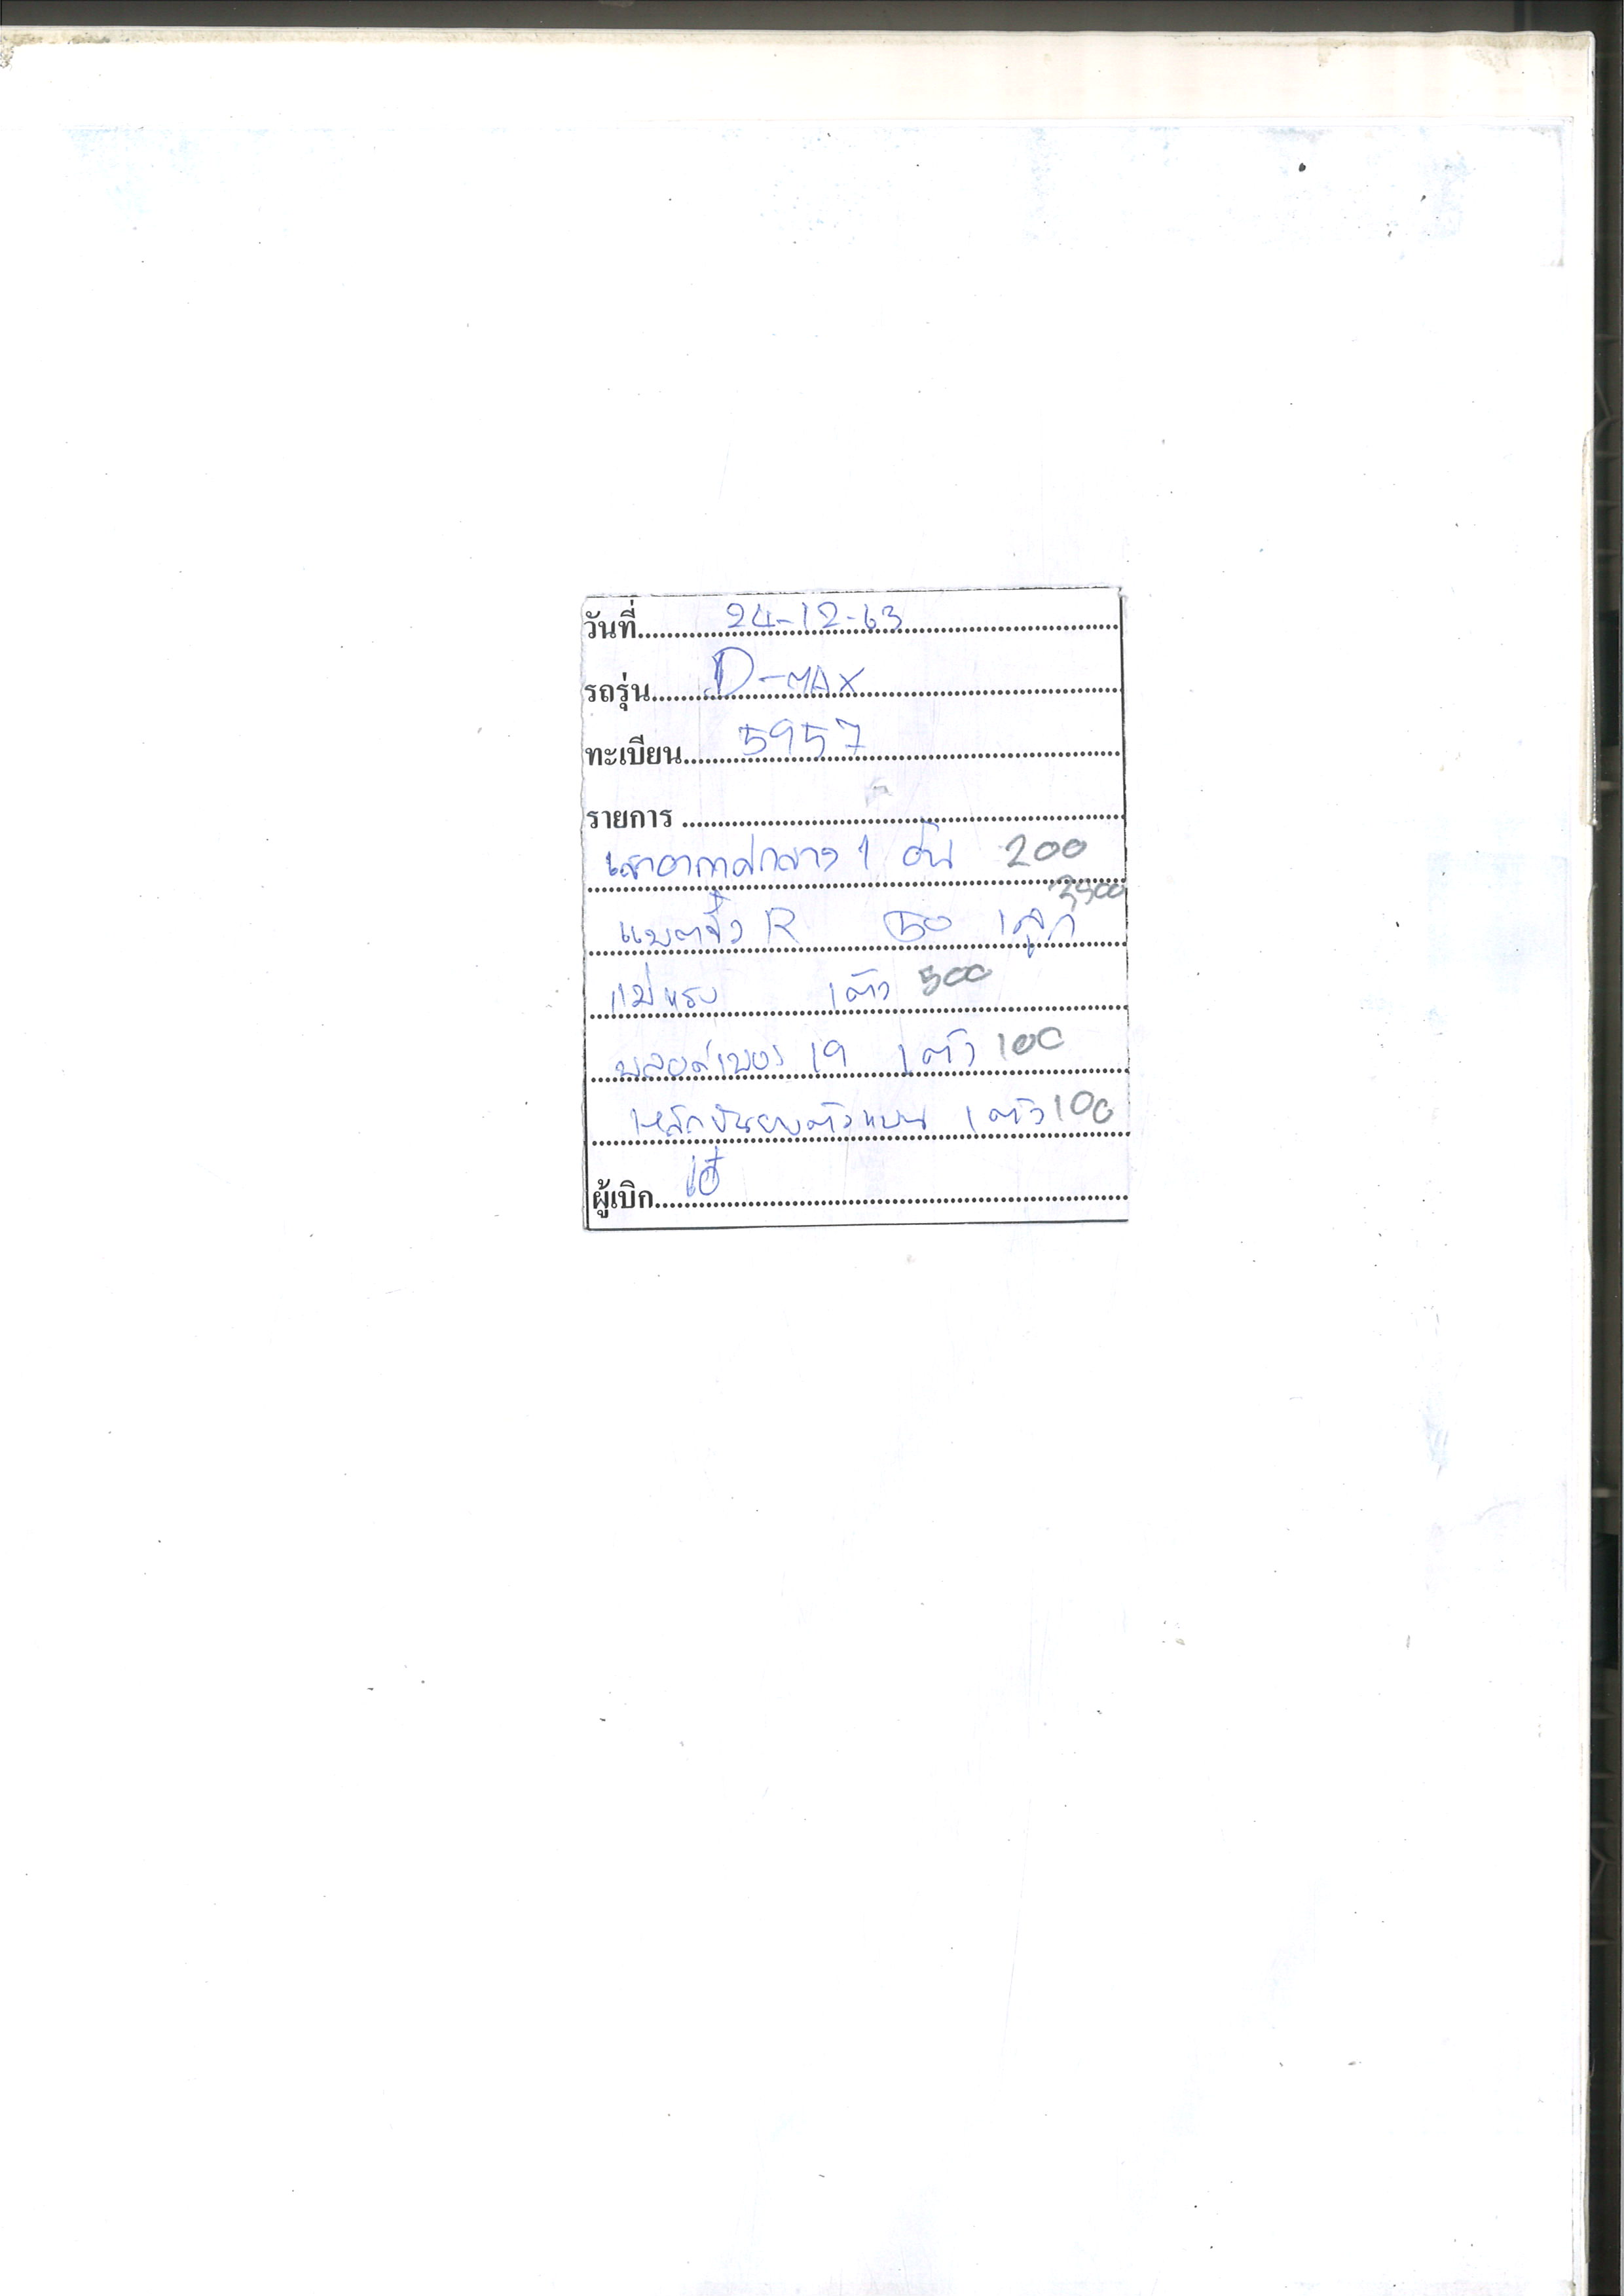 วันที่ 24-12-63
รถรุ่น D-MAX
ทะเบียน 5957
รายการ
เสาอากาศกลาง 1 อัน 200
3500
แบตจิ๋ว R 50 1 ลูก
แม่แรง 1 ตัว 500
บลอคเบอร์ 19 1 ตัว 100
เหล็กขันยางตัวแบน 1 ตัว 100
ผู้เบิก